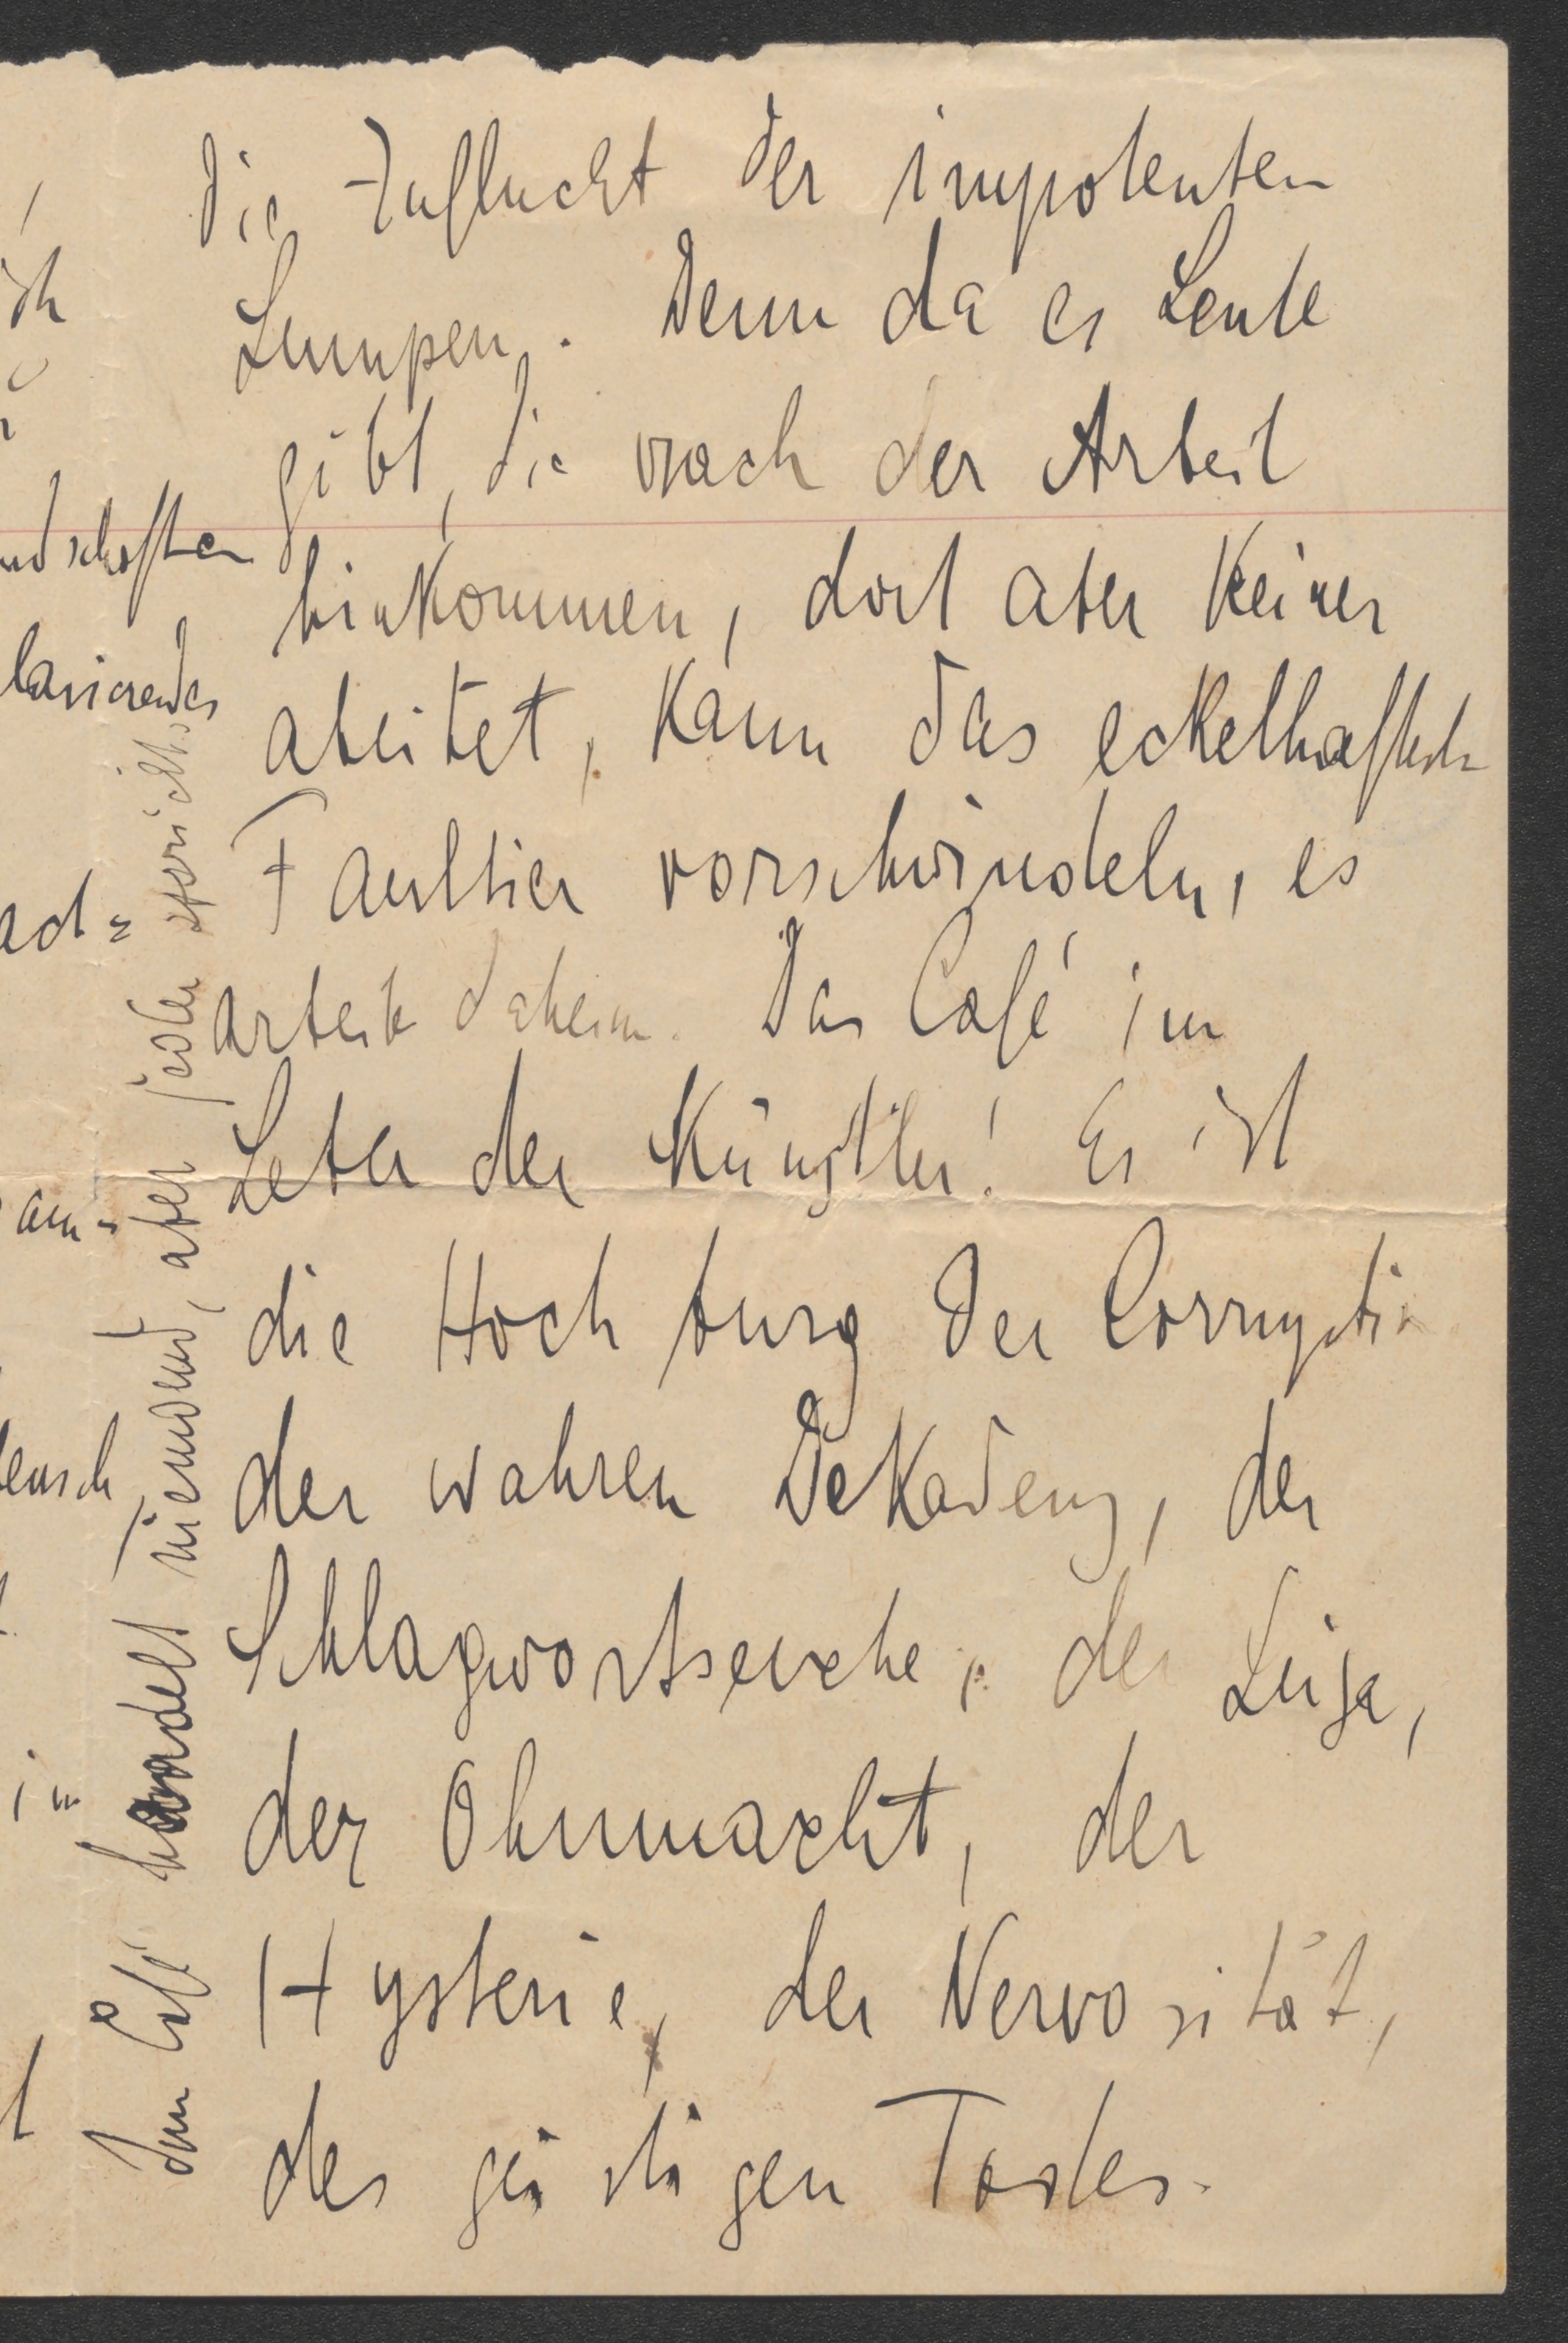 die Zuflucht der impotenten
Lumpen. Denn da es Leute
gibt, die nach der Arbeit
hinkommen, dort aber keiner
abeitet, kann das eckelhafteste
Faultier vorschwindeln, es
arbeite daheim. Das Café im
Leben der Künstler! Es ist
die Hochburg der Corruption
der wahren Dekadenz, der
Schlagwortseuche, der Lüge,
der Ohnmacht, der
Hysterie, der Nervosität,
des geistigen Todes.
Im Café handelt niemand, aber jeder spricht
ndschaften
lavierendes
ensch
in